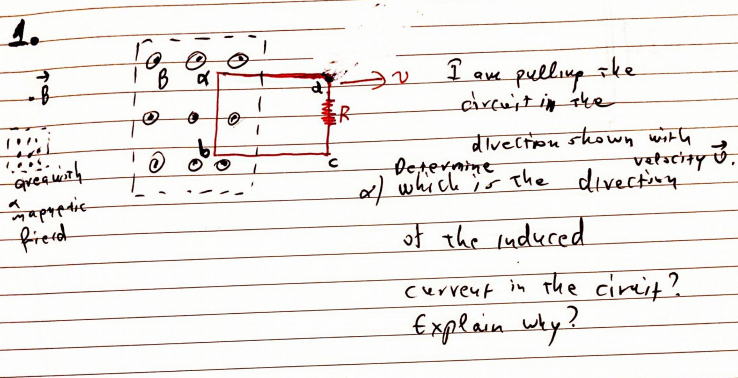 1.
B
B a
d
v
R
b
c
area with
a
magnetic
field
I am pulling the
circuit in the
direction shown with
velocity v.
Determine
a) which is the direction
of the induced
current in the ciruit?
Explain why?